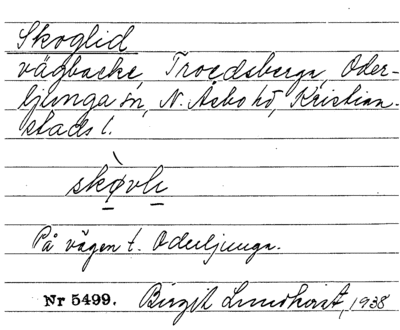 Skoglid
vägbacke, Troedsberga, Oder-
ljunga sn, N. Åsbo hd, Kristian-
stads l.
skø̀vli
På vägen t. Oderljunga.
Nr 5499. Birgit Lundhqvist, 1938